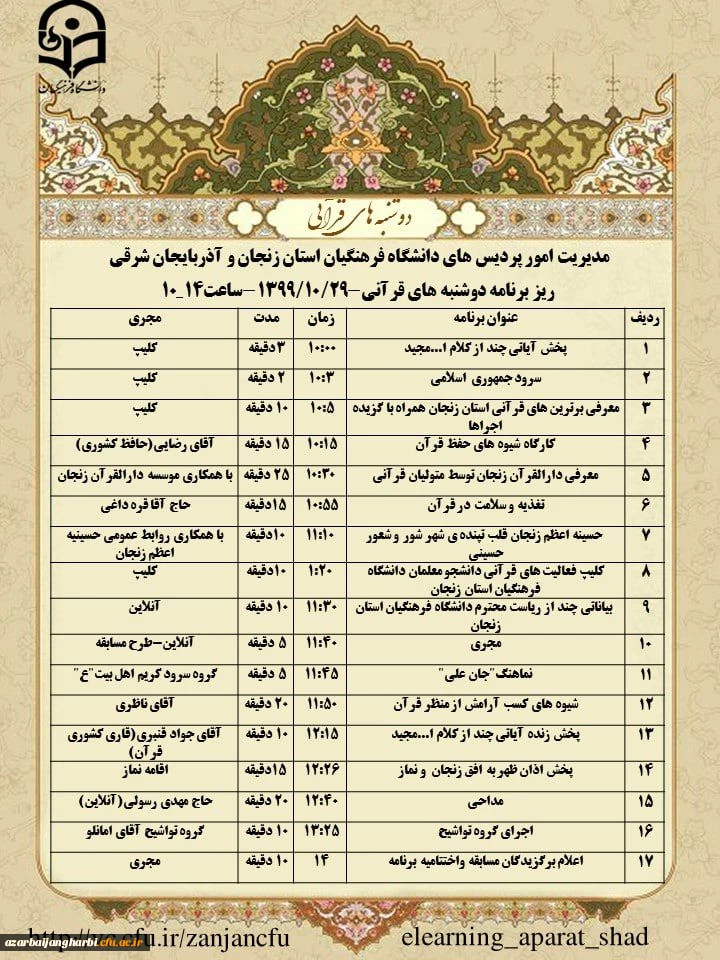 دانشگاه فرهنگیان
دوشنبه های قرآنی
مدیریت امور پردیس های دانشگاه فرهنگیان استان زنجان و آذربایجان شرقی
ریز برنامه دوشنبه های قرآنی-۱۳۹۹/۱۰/۲۹ -ساعت۱۴_۱۰
ردیف عنوان برنامه زمان مدت مجری
۱ پخش آیاتی چند از کلام ا...مجید ۱۰:۰۰ ۳دقیقه کلیپ
۲ سرود جمهوری اسلامی ۱۰:۳ ۲ دقیقه کلیپ
۳ معرفی برترین های قرآنی استان زنجان همراه با گزیده ۱۰:۵ ۱۰ دقیقه کلیپ
اجراها
۴ کارگاه شیوه های حفظ قرآن ۱۰:۱۵ ۱۵ دقیقه آقای رضایی(حافظ کشوری)
۵ معرفی دارالقرآن زنجان توسط متولیان قرآنی ۱۰:۳۰ ۲۵ دقیقه با همکاری موسسه دارالقرآن زنجان
۶ تغذیه و سلامت در قرآن ۱۰:۵۵ ۱۵دقیقه حاج آقا قره داغی
۷ حسینه اعظم زنجان قلب تپنده ی شهر شور و شعور ۱۱:۱۰ ۱۰دقیقه با همکاری روابط عمومی حسینیه
حسینی اعظم زنجان
۸ کلیپ فعالیت های قرآنی دانشجو معلمان دانشگاه ۱:۲۰ ۱۰دقیقه کلیپ
فرهنگیان استان زنجان
۹ بیاناتی چند از ریاست محترم دانشگاه فرهنگیان استان ۱۱:۳۰ ۱۰ دقیقه آنلاین
زنجان
۱۰ مجری ۱۱:۴۰ ۵ دقیقه آنلاین-طرح مسابقه
۱۱ نماهنگ"جان علی" ۱۱:۴۵ ۵ دقیقه گروه سرود کریم اهل بیت"ع"
۱۲ شیوه های کسب آرامش از منظر قرآن ۱۱:۵۰ ۲۰ دقیقه آقای ناظری
۱۳ پخش زنده آیاتی چند از کلام ا...مجید ۱۲:۱۵ ۱۰ دقیقه آقای جواد قنبری(قاری کشوری
قرآن)
۱۴ پخش اذان ظهر به افق زنجان و نماز ۱۲:۲۶ ۱۵دقیقه اقامه نماز
۱۵ مداحی ۱۲:۴۰ ۲۰ دقیقه حاج مهدی رسولی(آنلاین)
۱۶ اجرای گروه تواشیح ۱۳:۲۵ ۱۰ دقیقه گروه تواشیح آقای امانلو
۱۷ اعلام برگزیدگان مسابقه واختتامیه برنامه ۱۴ ۱۰ دقیقه مجری
http://vc.cfu.ir/zanjancfu elearning_aparat_shad
azarbaijangharbi.cfu.ac.ir